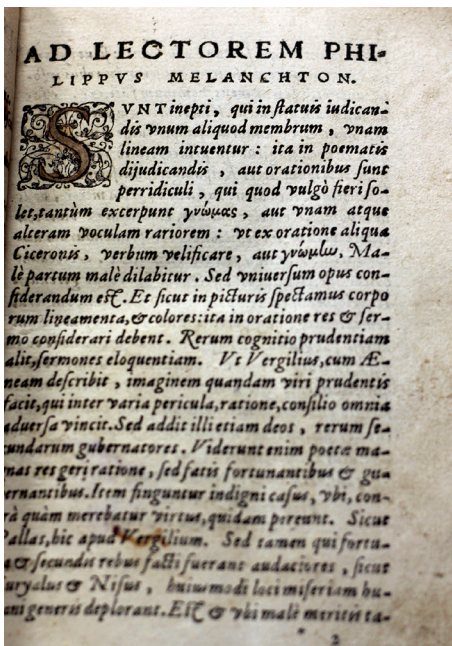 AD LECTOREM PHI-
LIPPVS MELANCHTON.
SVNT inepti, qui in statuis iudican-
dis vnum aliquod membrum, vnam
lineam intuentur: ita in poematis
dijudicandis, aut orationibus sunt
perridiculi, qui quod vulgò fieri so-
let, tantùm excerpunt γνώμας, aut vnam atque
alteram voculam rariorem: vt ex oratione aliqua
Ciceronis, verbum velificare, aut γνώμην, Ma-
lè partum malè dilabitur. Sed vniuersum opus con-
siderandum est. Et sicut in picturis spectamus corpo
rum lineamenta, & colores: ita in oratione res & ser-
mo considerari debent. Rerum cognitio prudentiam
alit, sermones eloquentiam. Vt Vergilius, cum Æ-
neam describit, imaginem quandam viri prudentis
facit, qui inter varia pericula, ratione, consilio omnia
aduersa vincit. Sed addit illi etiam deos, rerum se-
cundarum gubernatores. Viderunt enim poetæ ma-
nas res geri ratione, sed fatis fortunantibus & gu-
ernantibus. Item finguntur indigni casus, vbi, con-
rà quàm merebatur virtus, quidam pereunt. Sicut
Pallas, hic apud Vergilium. Sed tamen qui fortu-
a & secundis rebus facti fuerant audaciores, sicut
uryalus & Nisus, huiusmodi loci miseriam hu-
ani generis deplorant. Est & vbi malè meritis ta-
* 2